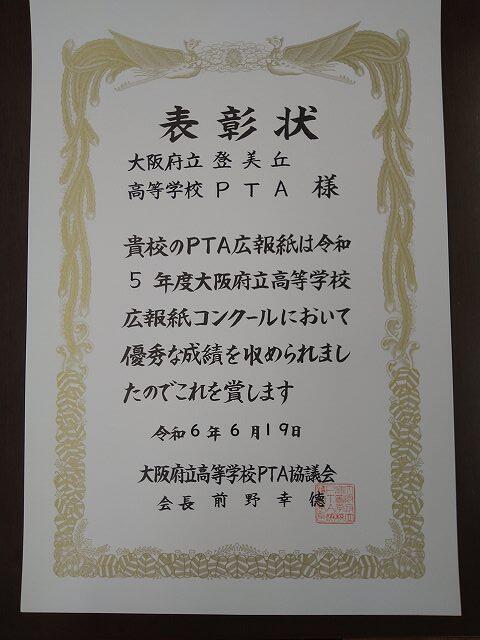 表彰状
大阪府立登美丘
高等学校PTA様
貴校のPTA広報紙は令和
5年度大阪府立高等学校
広報紙コンクールにおいて
優秀な成績を収められまし
たのでこれを賞します
令和6年6月19日
大阪府立高等学校PTA協議会
会長 前野幸德